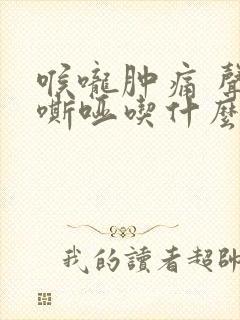 喉嚨肿痛 聲
嘶哑喫什麼
我的讀者超帥